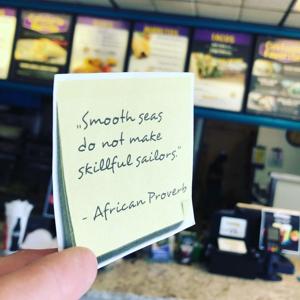 „Smooth seas
do not make
skillful sailors."
- African Proverb
TACOS